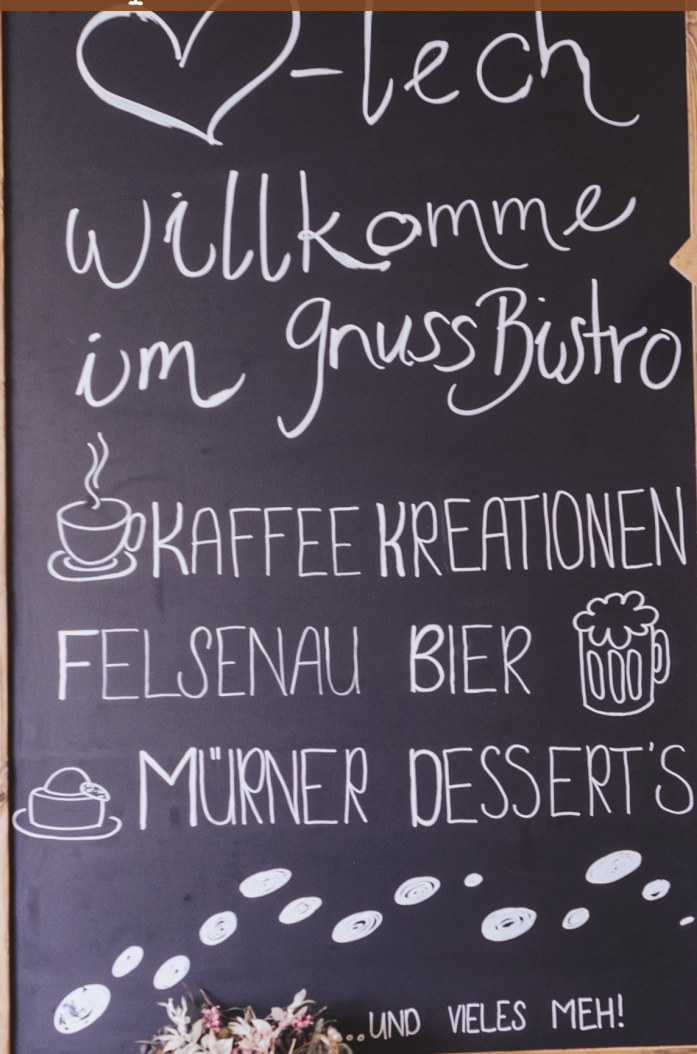 ♡-lech
willkomme
im gnussBistro
KAFFEE KREATIONEN
FELSENAU BIER
MÜRNER DESSERT'S
...UND VIELES MEH!